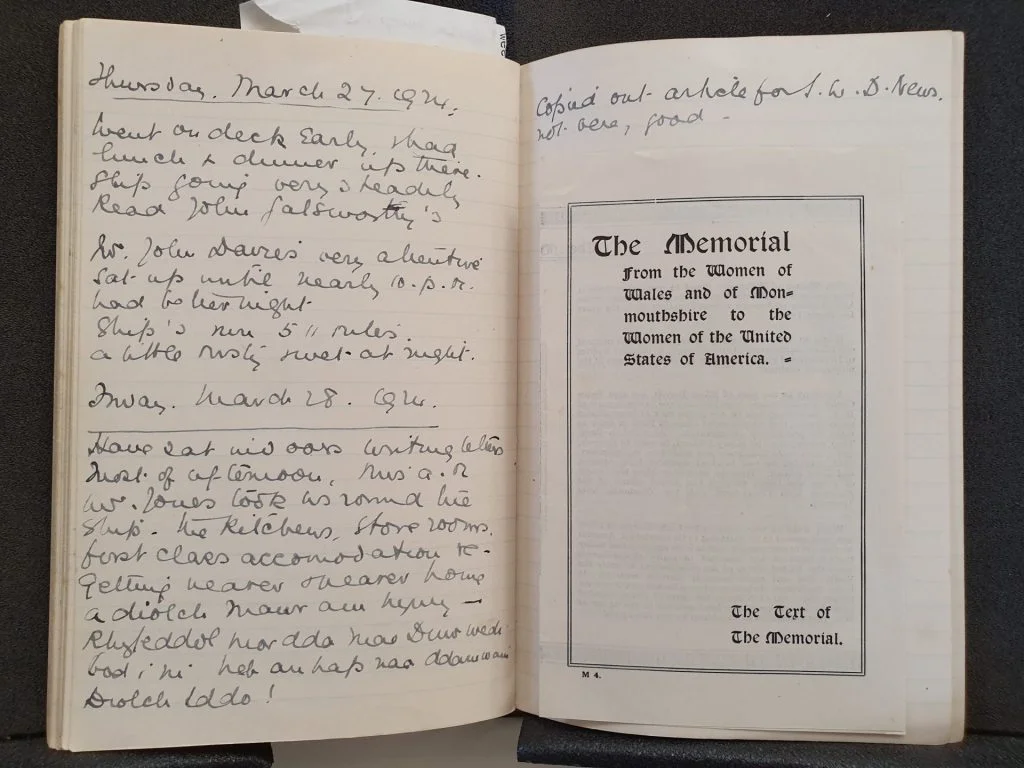 Thursday. March 27. 1924.
Went on deck early, & had
lunch & dinner up there.
Ship going very steadily
Read John Galsworthy's
Mr. John Davies very attentive
Sat up until nearly 10. p.m.
had better night
Ship's run 511 miles.
a little misty & wet at night.
Friday. March 28. 1924.
Have sat indoors writing letters
most of afternoon, this a.m
Mr. Jones took us round the
Ship. the kitchens, store rooms.
first class accomodation
Getting nearer & nearer home
a diolch mawr am hynny —
Rhyfeddol mor dda mae Duw wedi
bod i ni heb anhap na damwain
Diolch Iddo!
Copied out article for S. W. D. News.
not very, good -
The Memorial
From the Women of
Wales and of Mon=
mouthshire to the
Women of the United
States of America. =
The Text of
The Memorial.
M 4.